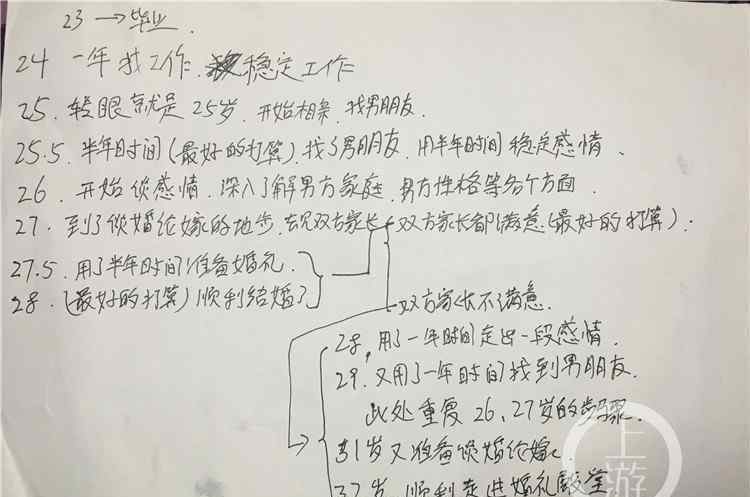 23 → 毕业.
24 一年找工作. 稳定工作
25. 转眼就是25岁. 开始相亲. 找男朋友.
25.5. 半年时间(最好的打算).找了男朋友.用半年时间稳定感情.
26. 开始谈感情.深入了解男方家庭.男方性格等各个方面.
27. 到了谈婚论嫁的地步.去见双方家长 双方家长都满意(最好的打算).
27.5. 用了半年时间准备婚礼.
28. (最好的打算)顺利结婚了
双方家长不满意.
28, 用了一年时间走出一段感情.
29. 又用了一年时间找到男朋友.
此处重复26、27岁的步骤.
31岁又准备谈婚论嫁.
32岁 顺利走进婚礼殿堂
上游